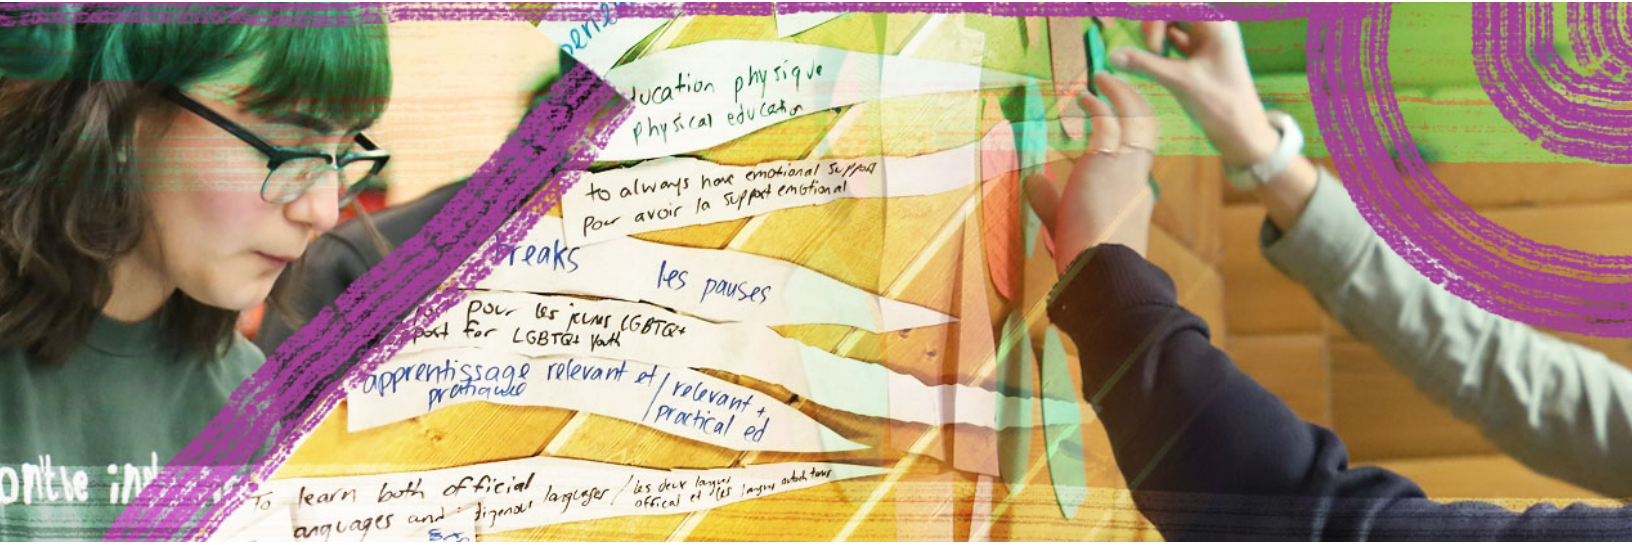 perien
ducation physique
physical education
to always have emotional support
pour avoir la support emotional
breaks les pauses
pour les jeunes LGBTQ+
port for LGBTQ+ youth
apprentissage relevant et / relevant +
pratique practical ed
To learn both official
anguages and digenous languages / les deux langues
offical et les langues autochtones
on'tle in